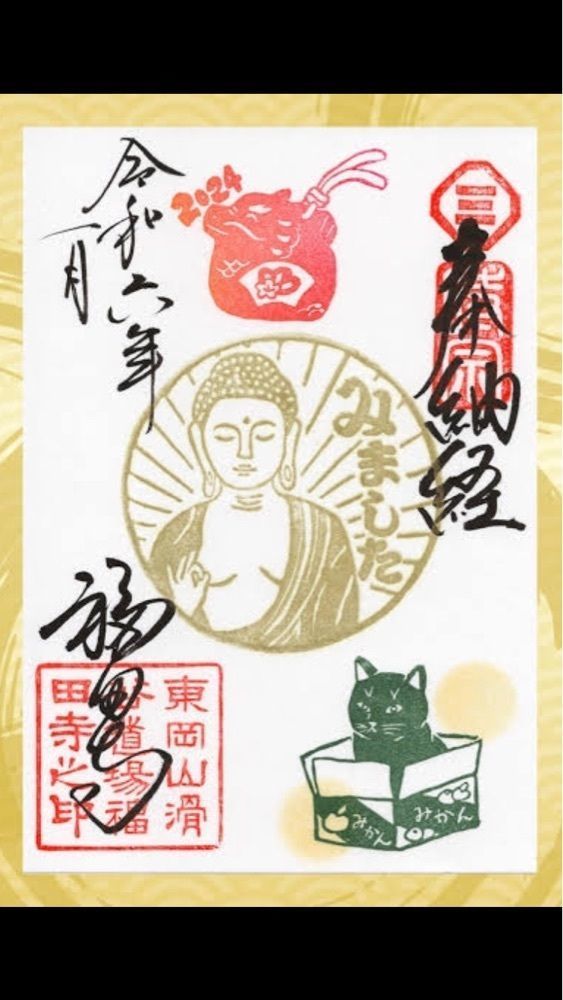 奉納経
三
時宗
2024
令和六年
一月
みました
福田寺
東岡山滑
谷道場福
田寺之印
みかん
みかん